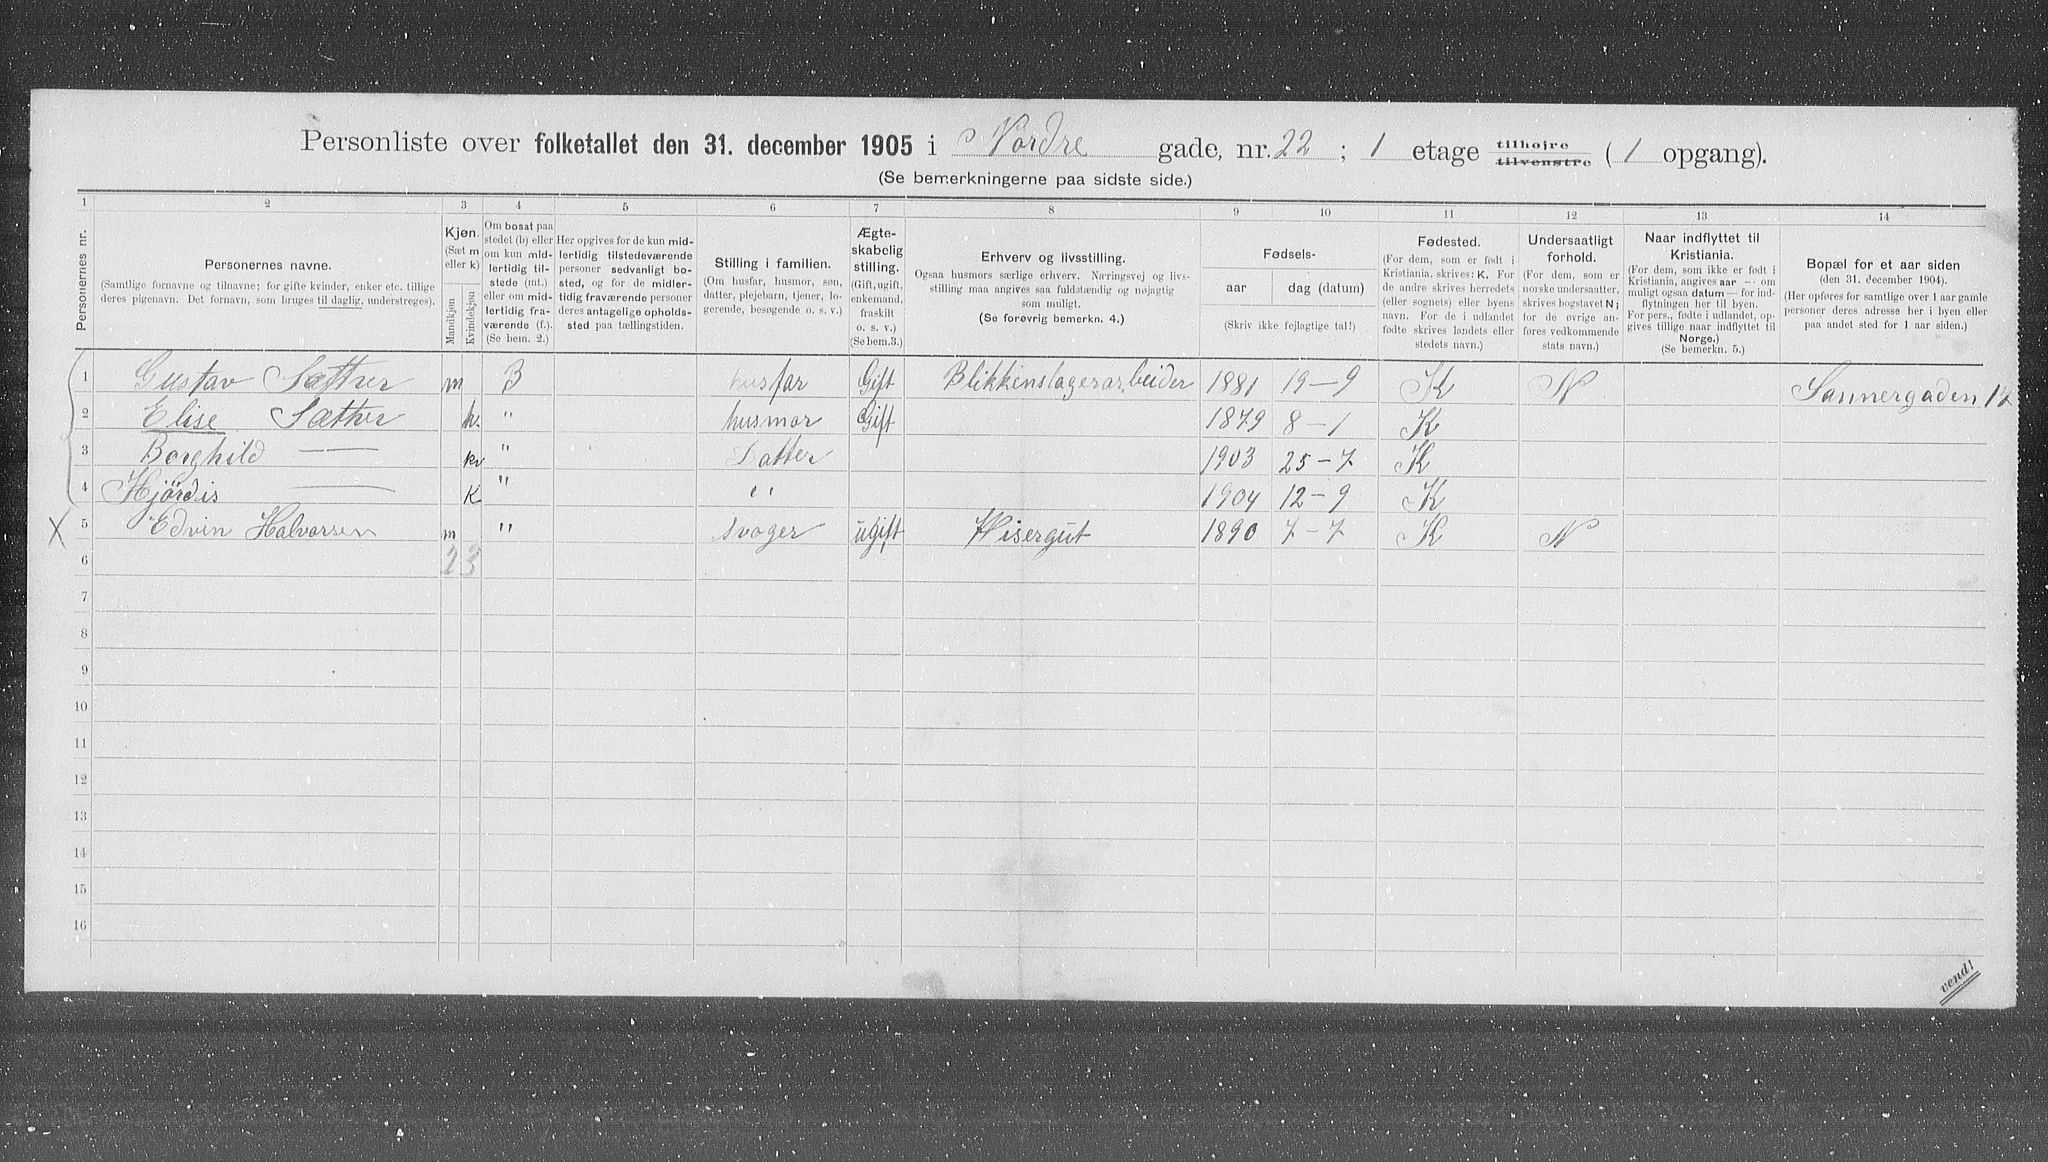 Personliste over folketallet den 31. december 1905 i Nordre gade, nr. 22 ; 1 etage tilhøjre tilvenstre ( 1 opgang).
(Se bemerkningerne paa sidste side.)
1 2 3 4 5 6 7 8 9 10 11 12 13 14
Personernes nr.
Personernes navne.
(Samtlige fornavne og tilnavne; for gifte kvinder, enker etc. tillige
deres pigenavn. Det fornavn, som bruges til daglig, understreges).
Kjøn.
(Sæt m
eller k)
Mandkjøn
Kvindekjøn
Om bosat paa
stedet (b) eller
om kun mid-
lertidig til-
stede (mt.)
eller om mid-
lertidig fra-
værende (f.).
(Se bem. 2.)
Her opgives for de kun mid-
lertidig tilstedeværende
personer sedvanligt bo-
sted, og for de midler-
tidig fraværende personer
deres antagelige opholds-
sted paa tællingstiden.
Stilling i familien.
(Om husfar, husmor, søn,
datter, plejebarn, tjener, lo-
gerende, besøgende o. s. v.)
Ægte-
skabelig
stilling.
(Gift, ugift,
enkemand,
fraskilt
o. s. v.)
(Se bem.3.)
Erhverv og livsstilling.
Ogsaa husmors særlige erhverv. Næringsvej og livs-
stilling maa angives saa fuldstændig og nøjagtig
som muligt.
(Se forøvrig bemerkn. 4.)
Fødsels-
aar
dag (datum)
(Skriv ikke fejlagtige tal!)
Fødested.
(For dem, som er født i
Kristiania, skrives: K. For
de andre skrives herredets
(eller sognets) eller byens
navn. For de i udlandet
fødte skrives landets eller
stedets navn.)
Undersaatligt
forhold.
(For dem, som er
norske undersaatter,
skrives bogstavet N;
for de øvrige an-
føres vedkommende
stats navn.)
Naar indflyttet til
Kristiania.
(For dem, som ikke er født i
Kristiania, angives aar — om
muligt ogsaa datum — for ind-
flytningen her til byen.
For pers., fødte i udlandet, op-
gives tillige naar indflyttet til
Norge.)
(Se bemerkn. 5.)
Bopæl for et aar siden
(den 31. december 1904).
(Her opføres for samtlige over 1 aar gamle
personer deres adresse her i byen eller
paa andet sted for 1 aar siden.)
1 Gustav Sæther m B husfar Gift Blikkenslagerarbeider 1881 19-9 K N Sannergaden 12
2 Elise Sæther k. " husmor Gift 1879 8-1 K
3 Borghild — kv " Datter 1903 25-7 K
4 Hjördis — K " " 1904 12-9 K
X 5 Edvin Halvorsen m " svoger ugift Visergut 1890 7-7 K N
6 2 3
7
8
9
10
11
12
13
14
15
16
vend!